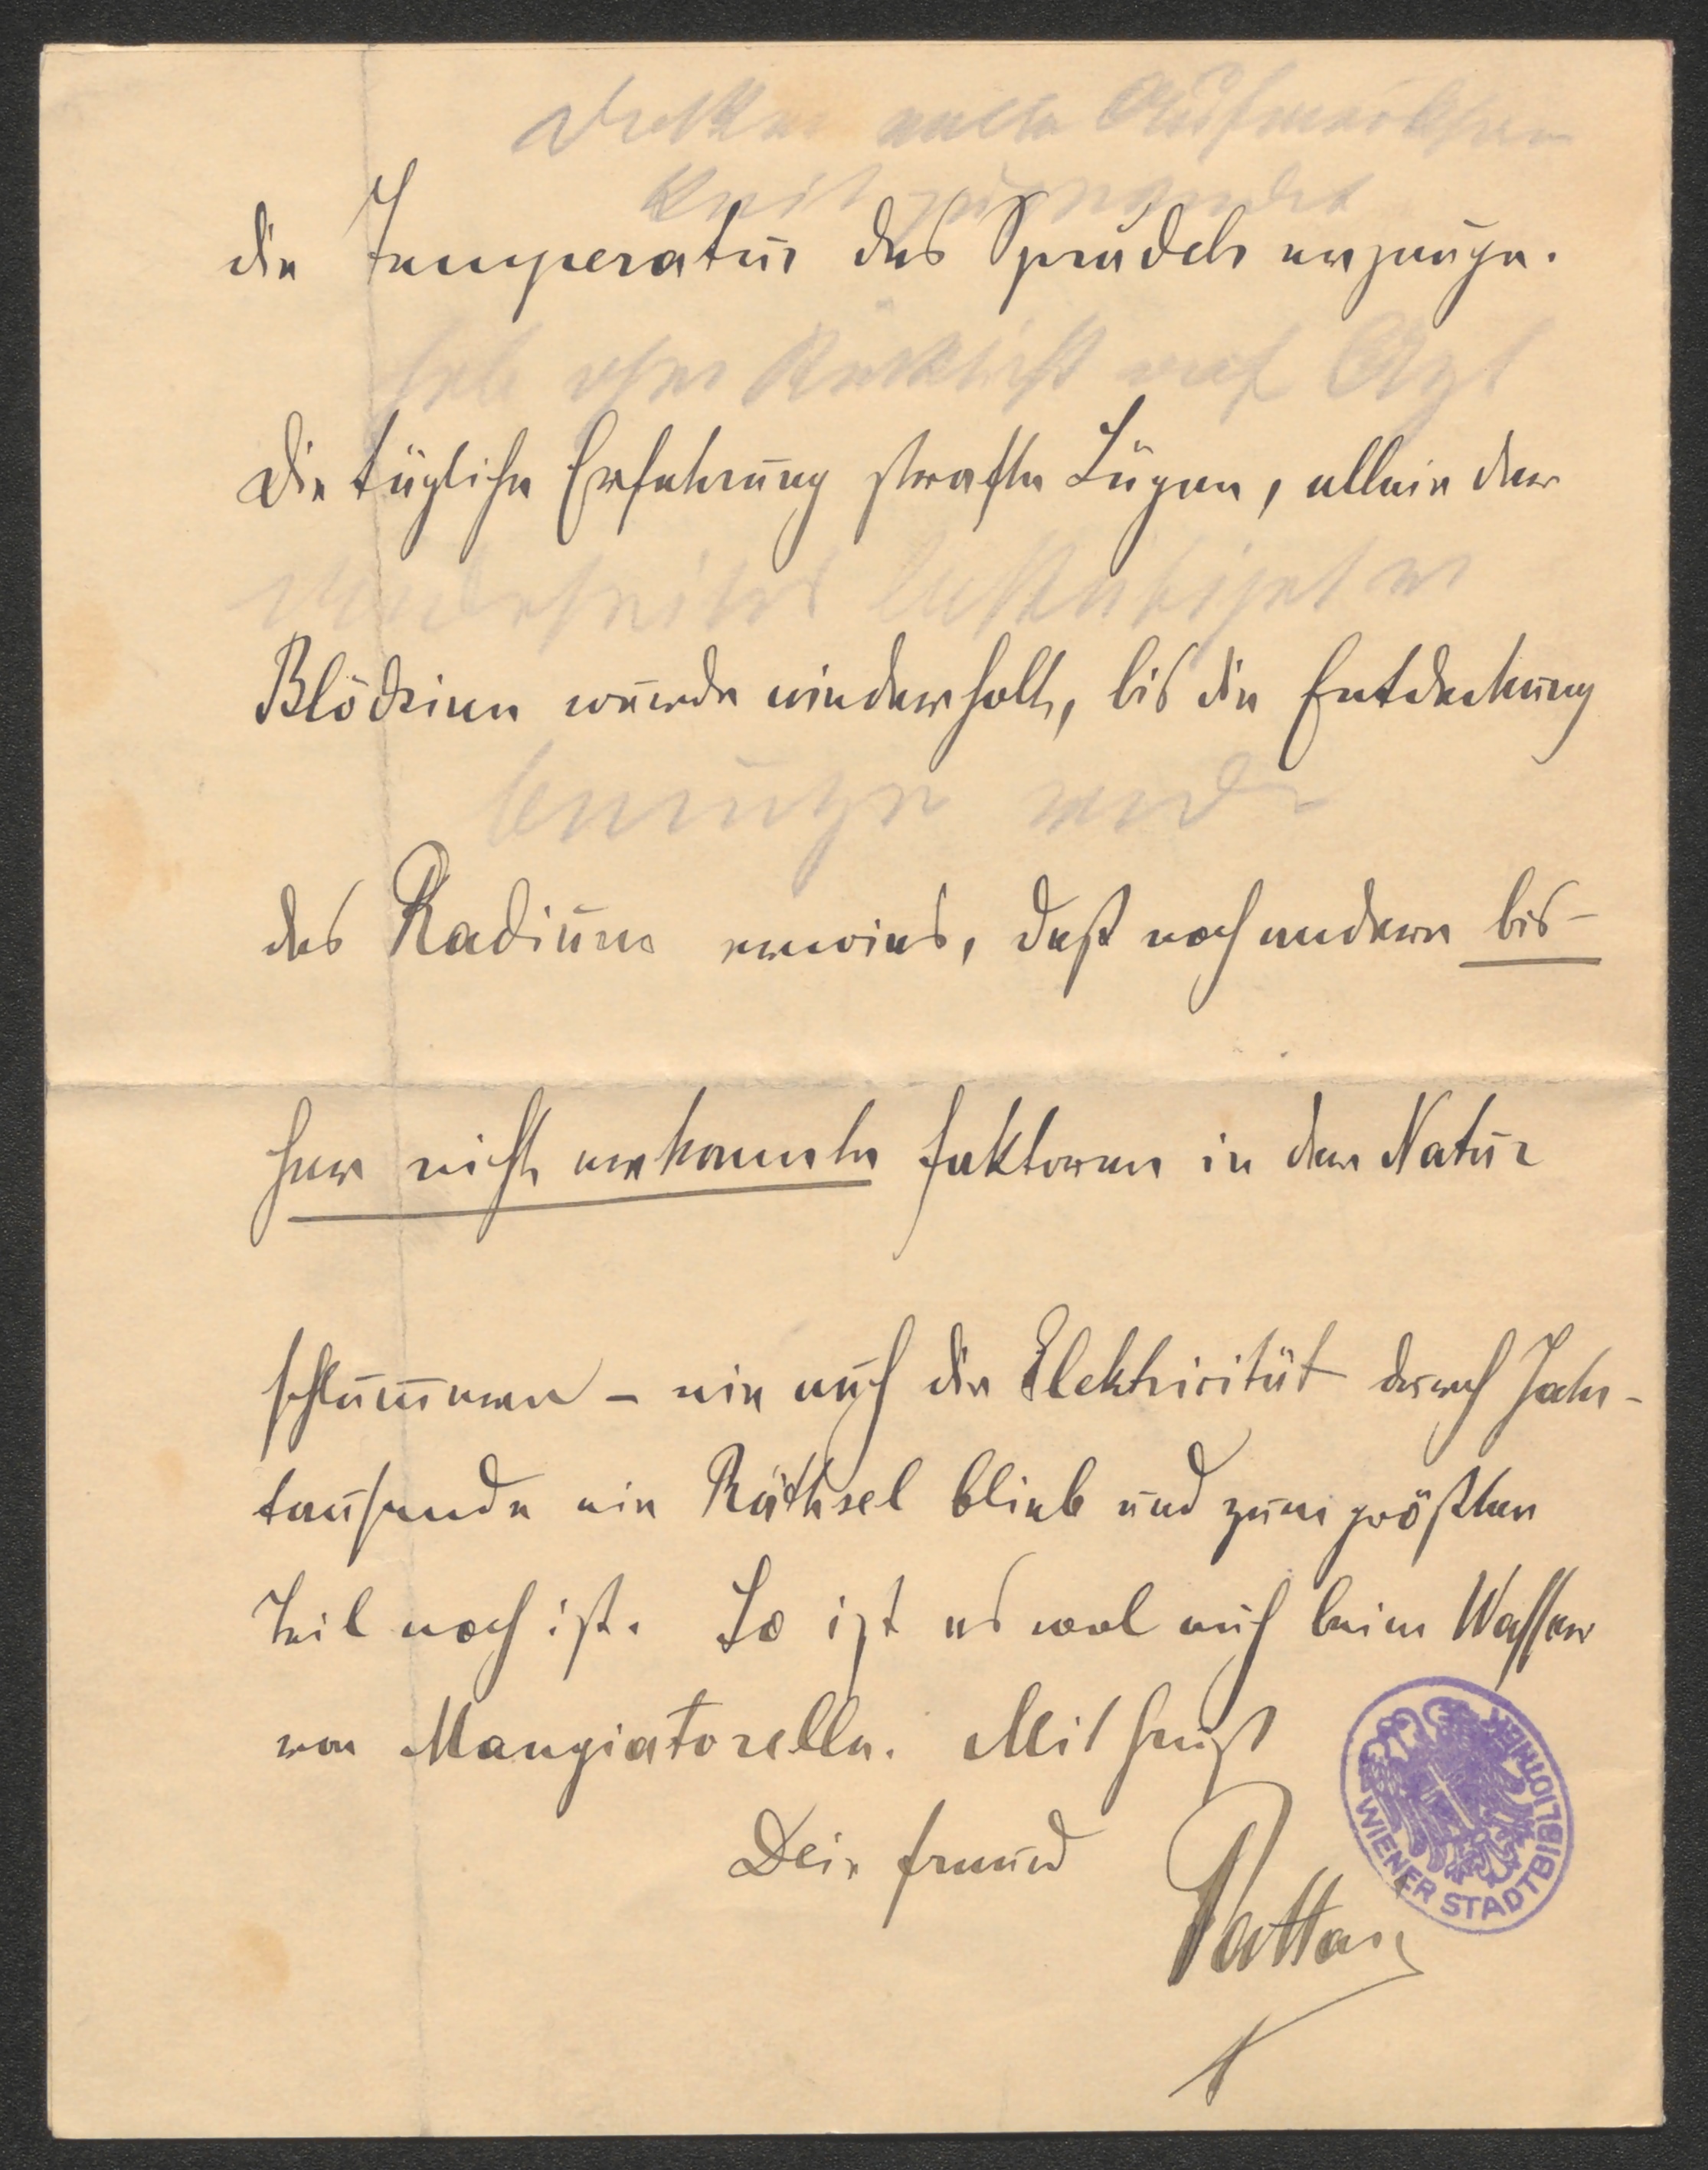 vollen Aufmerksam
keit zuwendet
die Temperatur des Sprudels erzeuge.
ohne Rücksicht auf
Die tägliche Erfahrung strafte Lügen, allein der
Blödsinn wurde wiederholt, bis die Entdeckung
werde
des Radiums erwies, daß noch andere bis-
her nicht erkannte Faktoren in der Natur
schlummern – wie auch die Elektricität durch Jahr-
tausende ein Räthsel blieb und zum größten
Teil noch ist. So ist es wol auch beim Wasser
von Mangiatorella. Mit Gruß
Dein Freund
Pattai
WIENER STADTBIBLIOTHEK